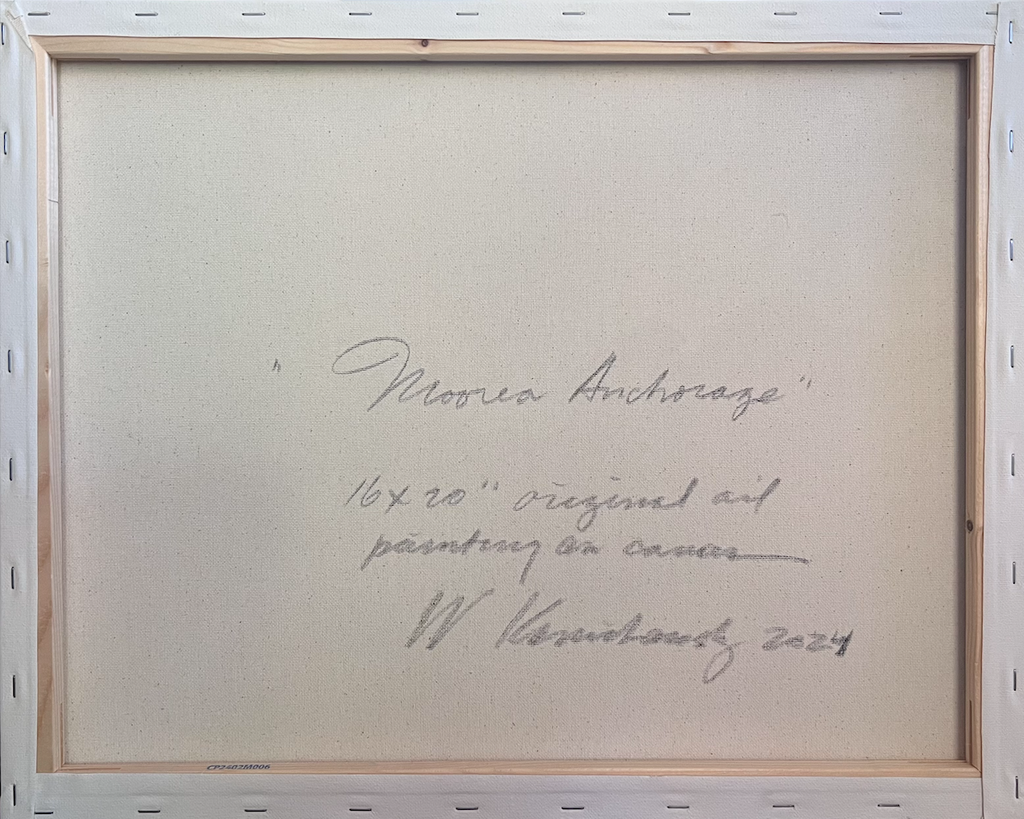 " Moorea Anchorage"
16 x 20" original oil
painting on canvas
W 2024
CP2402M006